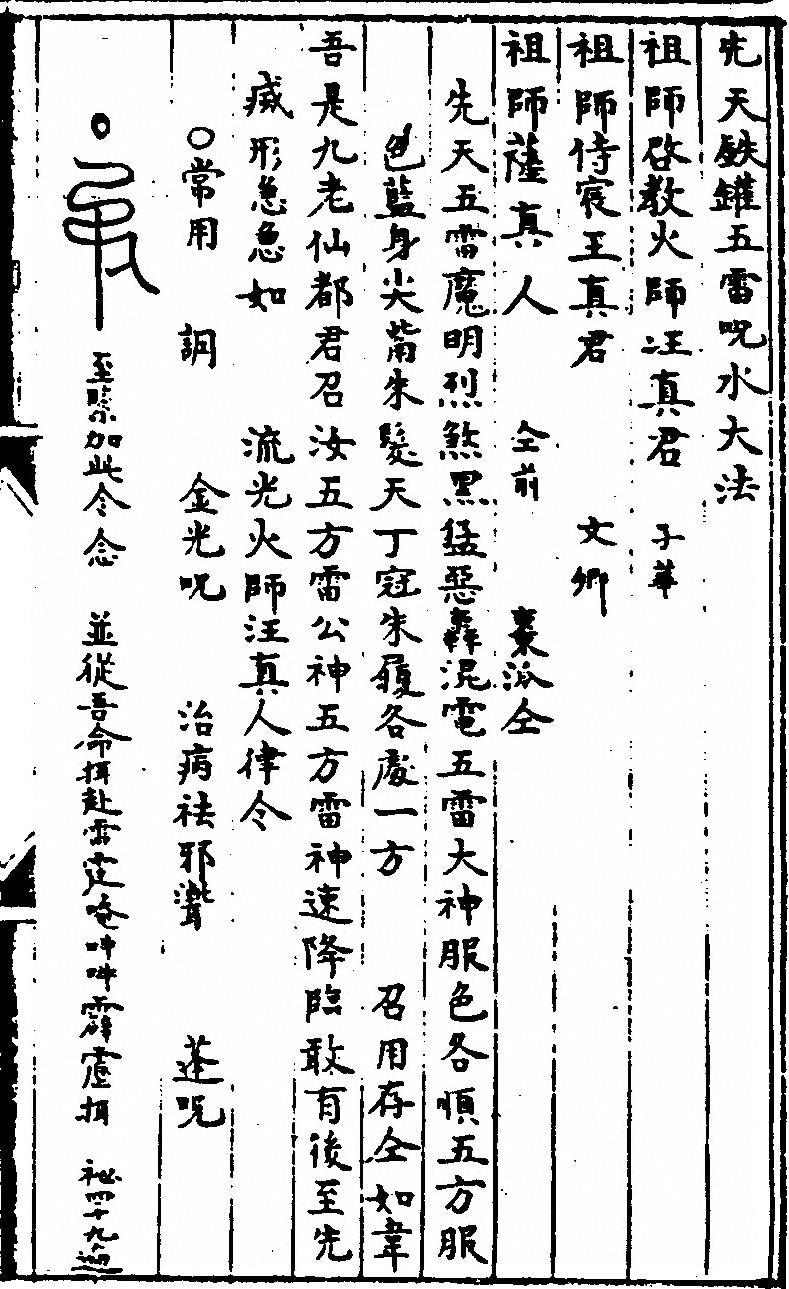 先天鉄罐五雷呪水大法
祖師啓教火師汪真君 子華
祖師侍宸王真君 文卿
祖師薩真人 仝前 裏派仝
先天五雷魔明烈煞黑猛惡轟混電五雷大神服色各順五方服
色藍身尖觜朱髮天丁冠朱履各處一方 召用存仝如韋
吾是九老仙都君召汝五方雷公神五方雷神速降臨敢有後至先
滅形急急如 流光火師汪真人律令
○常用 詷 金光呪 治病祛邪 蓬呪
至緊加此令念 並從吾命揖赴雷霆唵吽吽霹靂揖 祕四十九遍